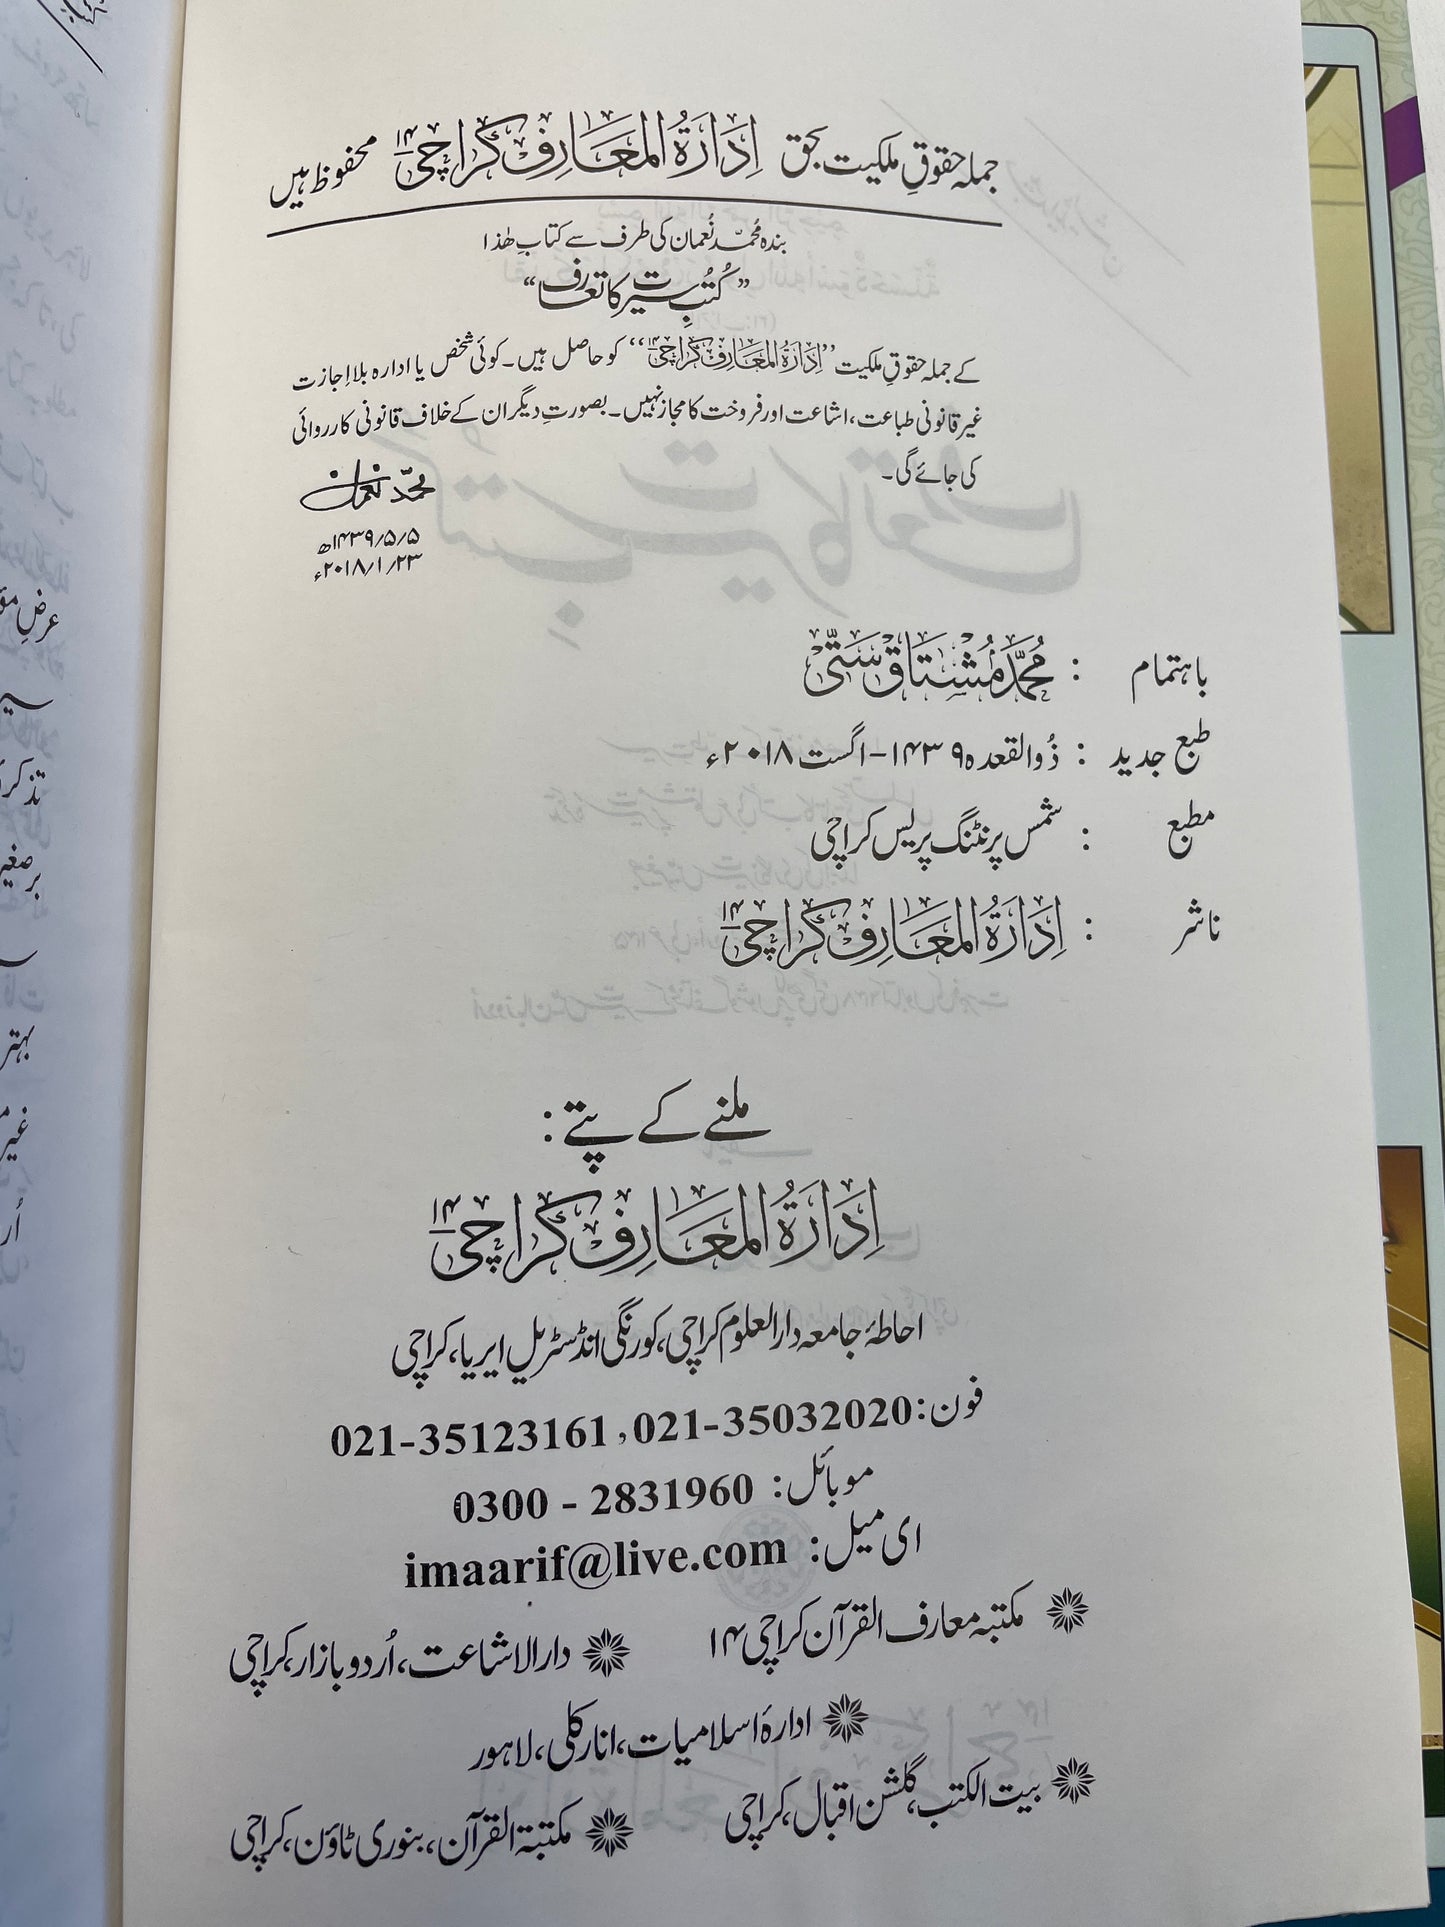 جملہ حقوقِ ملکیت بحق اِدَارَۃُ المَعَارِف کَرَاچِی ۱۴ محفوظ ہیں
بندہ محمّد نُعمان کی طرف سے کتابِ ھٰذا
”کُتُبِ سیرت کا تعارف“
کے جملہ حقوقِ ملکیت ’’اِدَارَۃُ المَعَارِف کَرَاچِی ۱۴‘‘ کو حاصل ہیں۔ کوئی شخص یا ادارہ بلا اِجازت
غیر قانونی طباعت، اشاعت اور فروخت کا مجاز نہیں۔ بصورتِ دیگر ان کے خلاف قانونی کارروائی
کی جائے گی۔
محمّد نعمان
۱۴۳۹/۵/۵ھ
۲۰۱۸/۱/۲۳ء
باہتمام : مُحَمَّد مُشْتَاق سَتِّی
طبع جدید : ذُوالقعدہ ۱۴۳۹ – اگست ۲۰۱۸ء
مطبع : شمس پرنٹنگ پریس کراچی
ناشر : اِدَارَۃُ المَعَارِف کَرَاچِی ۱۴
ملنے کے پتے:
اِدَارَۃُ المَعَارِف کَرَاچِی ۱۴
احاطۂ جامعہ دارالعلوم کراچی، کورنگی انڈسٹریل ایریا، کراچی
فون: 021-35123161, 021-35032020
موبائل: 0300 - 2831960
ای میل: imaarif@live.com
مکتبہ معارف القرآن کراچی ۱۴
دارالاشاعت، اُردو بازار، کراچی
ادارۂ اسلامیات، انارکلی، لاہور
بیت الکتب، گلشن اقبال، کراچی
مکتبۃ القرآن، بنوری ٹاؤن، کراچی